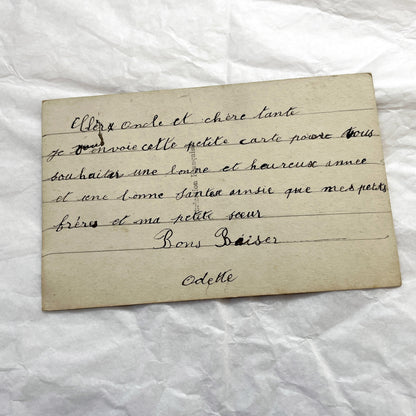 Cher Oncle et chère tante
je vous envoie cette petite carte pour vous
souhaiter une bonne et heureux annee
et une bonne santer ainsie que mes petits
frères et ma petite sœur
Bons Baiser
Odette